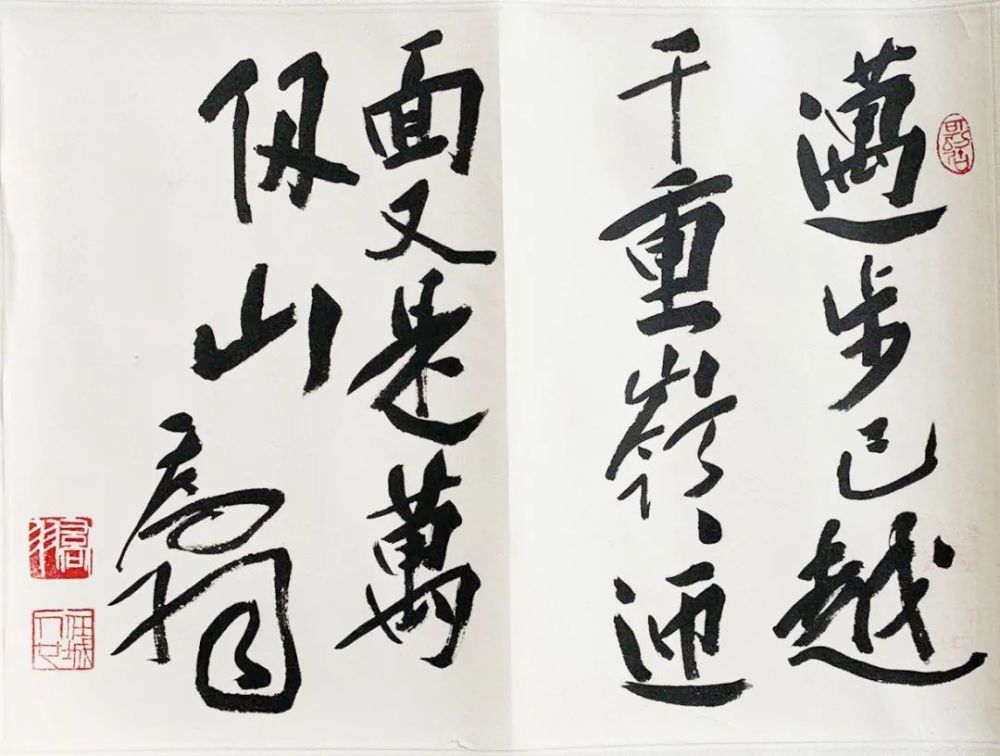 邁步已越
千重嶺迎
面又是萬
仞山